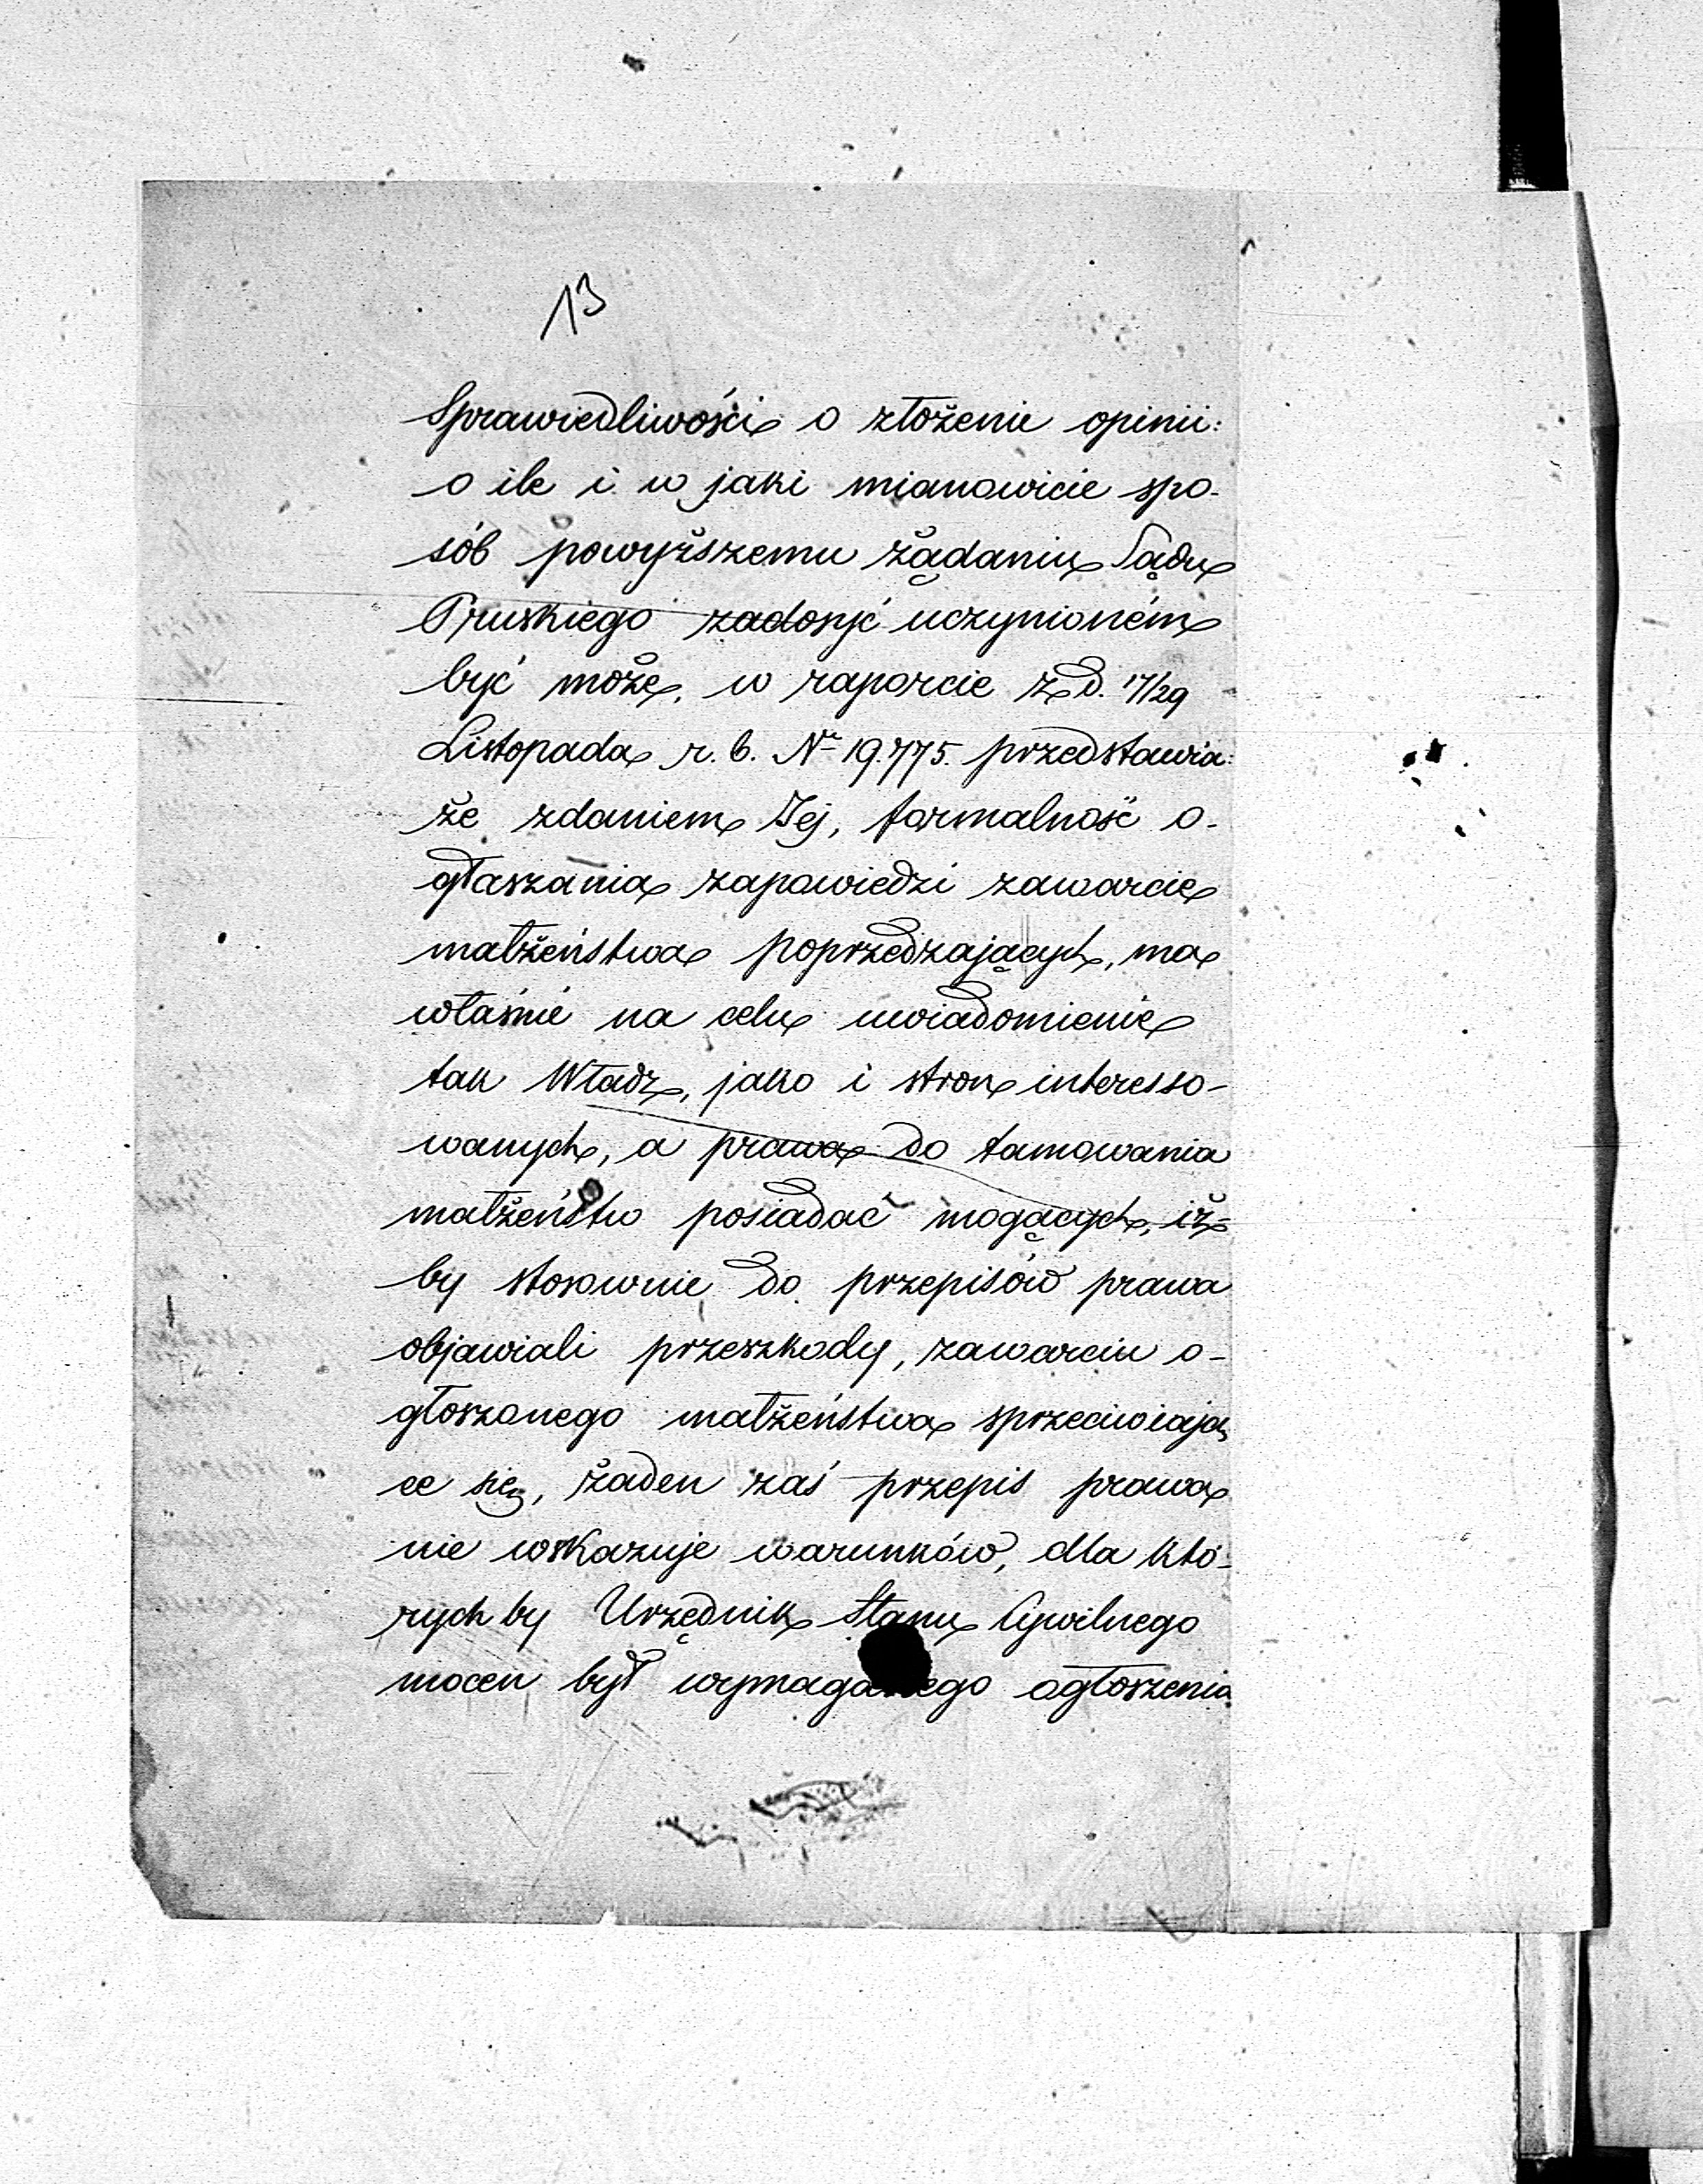 13
Sprawiedliwości o złożenie opinii:
o ile i w jaki mianowicie spo-
sób powyższemu żądaniu Sądu
Pruskiego zadosyć uczynioném
być może, w raporcie z d. 17/29
Listopada r. b. Nr 19.775. przedstawia:
że zdaniem Jej, formalność o-
głaszania zapowiedzi zawarcie
małżeństwa poprzedzających, ma
właśnie na celu uwiadomienie
tak Władz, jako i stron interesso-
wanych, a prawa do tamowania
małżeństw posiadać mogących, iż-
by stosownie do przepisów prawa
objawiali przeszkody, zawarciu o-
głoszonego małżeństwa sprzeciwiają
ce się, żaden zaś przepis prawa
nie wskazuje warunków, dla któ-
rych by Urzędnik Stanu Cywilnego
mocen był wymaganego ogłoszenia